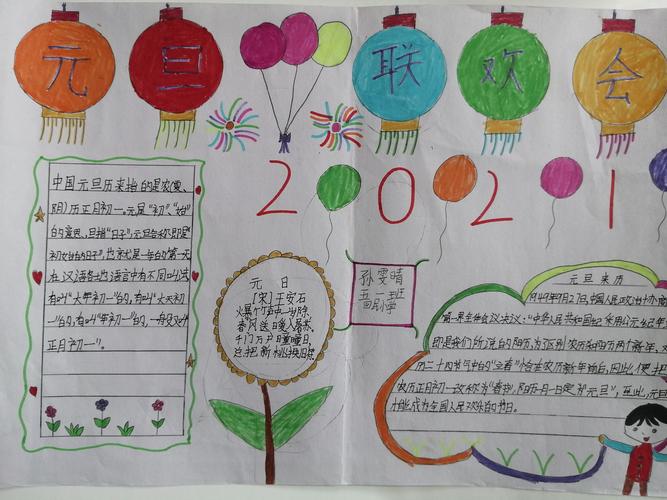 元旦联欢会
2021
中国元旦历来指的是农(夏、
阴)历正月初一。元是"初""始"
的意思,旦指"日子",元旦合称即是"
初始的日子",也就是一年的第一天
在汉语各地方言中有不同叫法
有叫"大年初一"的,有叫"大天初
一"的,有叫"年初一"的,一般又叫"
正月初一"。
元日
[宋]王安石
爆竹声中一岁除,
春风送暖入屠苏。
千门万户曈曈日,
总把新桃换旧符。
孙雯晴
班
小学
元旦来历
1949年9月27日,中国人民政治协商
第一届全体会议决议:"中华人民共和国纪年采用公元纪年
即是我们所说的阳历,为区别农历和阳历两个新年,又
历二十四节气中的"立春"恰在农历新年前后,因此便把
农历正月初一改称为"春节",阳历一月一日定为"元旦",至此,元旦
才能成为全国人民欢乐的节日。